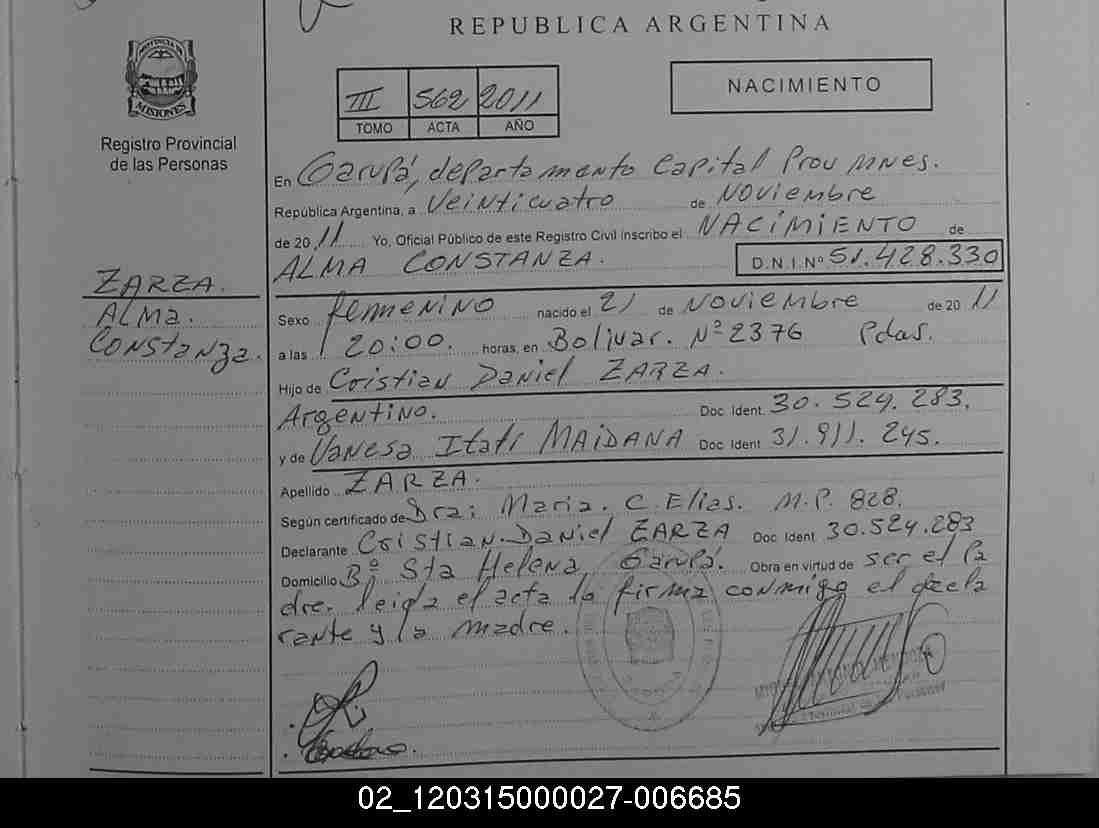 REPUBLICA ARGENTINA
PROVINCIA DE
MISIONES
Registro Provincial
de las Personas
III 562 2011
TOMO ACTA AÑO
NACIMIENTO
En Garupá, departamento Capital Prov MNES.
República Argentina, a Veinticuatro de NOVIEMBRE
de 20 11 Yo, Oficial Público de este Registro Civil inscribo el NACIMIENTO de
ALMA CONSTANZA. D.N.I.Nº 51.428.330
ZARZA.
ALMA.
CONSTANZA.
Sexo femenino nacido el 21 de NOVIEMBRE de 20 11
a las 20:00. horas, en Bolivar. Nº 2376 Pdas.
Hijo de Cristian Daniel ZARZA.
Argentino. Doc Ident. 30.524.283.
y de Vanesa Itatí MAIDANA Doc Ident 31.911.245.
Apellido ZARZA.
Según certificado de Dra: Maria. C. Elias. M.P. 828.
Declarante Cristian Daniel ZARZA Doc Ident 30.524.283
Domicilio Bº Sta Helena Garupá. Obra en virtud de ser el Pa
dre. leida el acta la firma conmigo el decla
rante y la madre.
02_120315000027-006685